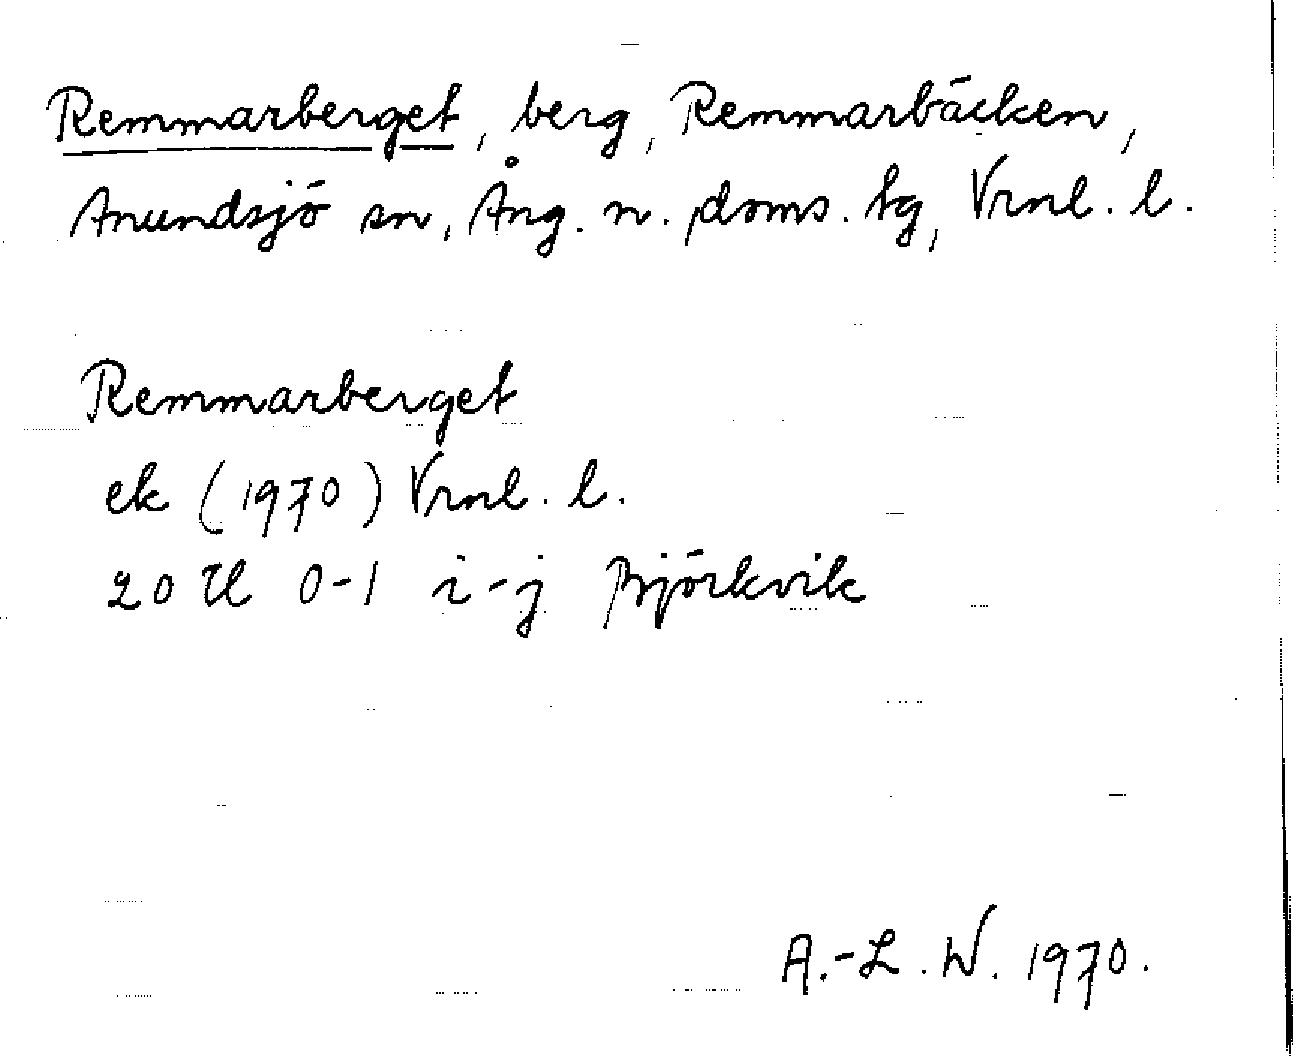 Remmarberget, berg, Remmarbäcken,
Anundsjö sn, Ång. n. doms. tg, Vrnl. l.
Remmarberget
ek (1970) Vrnl. l.
20 H 0-1 i-j Björkvik
A.-L. W. 1970.